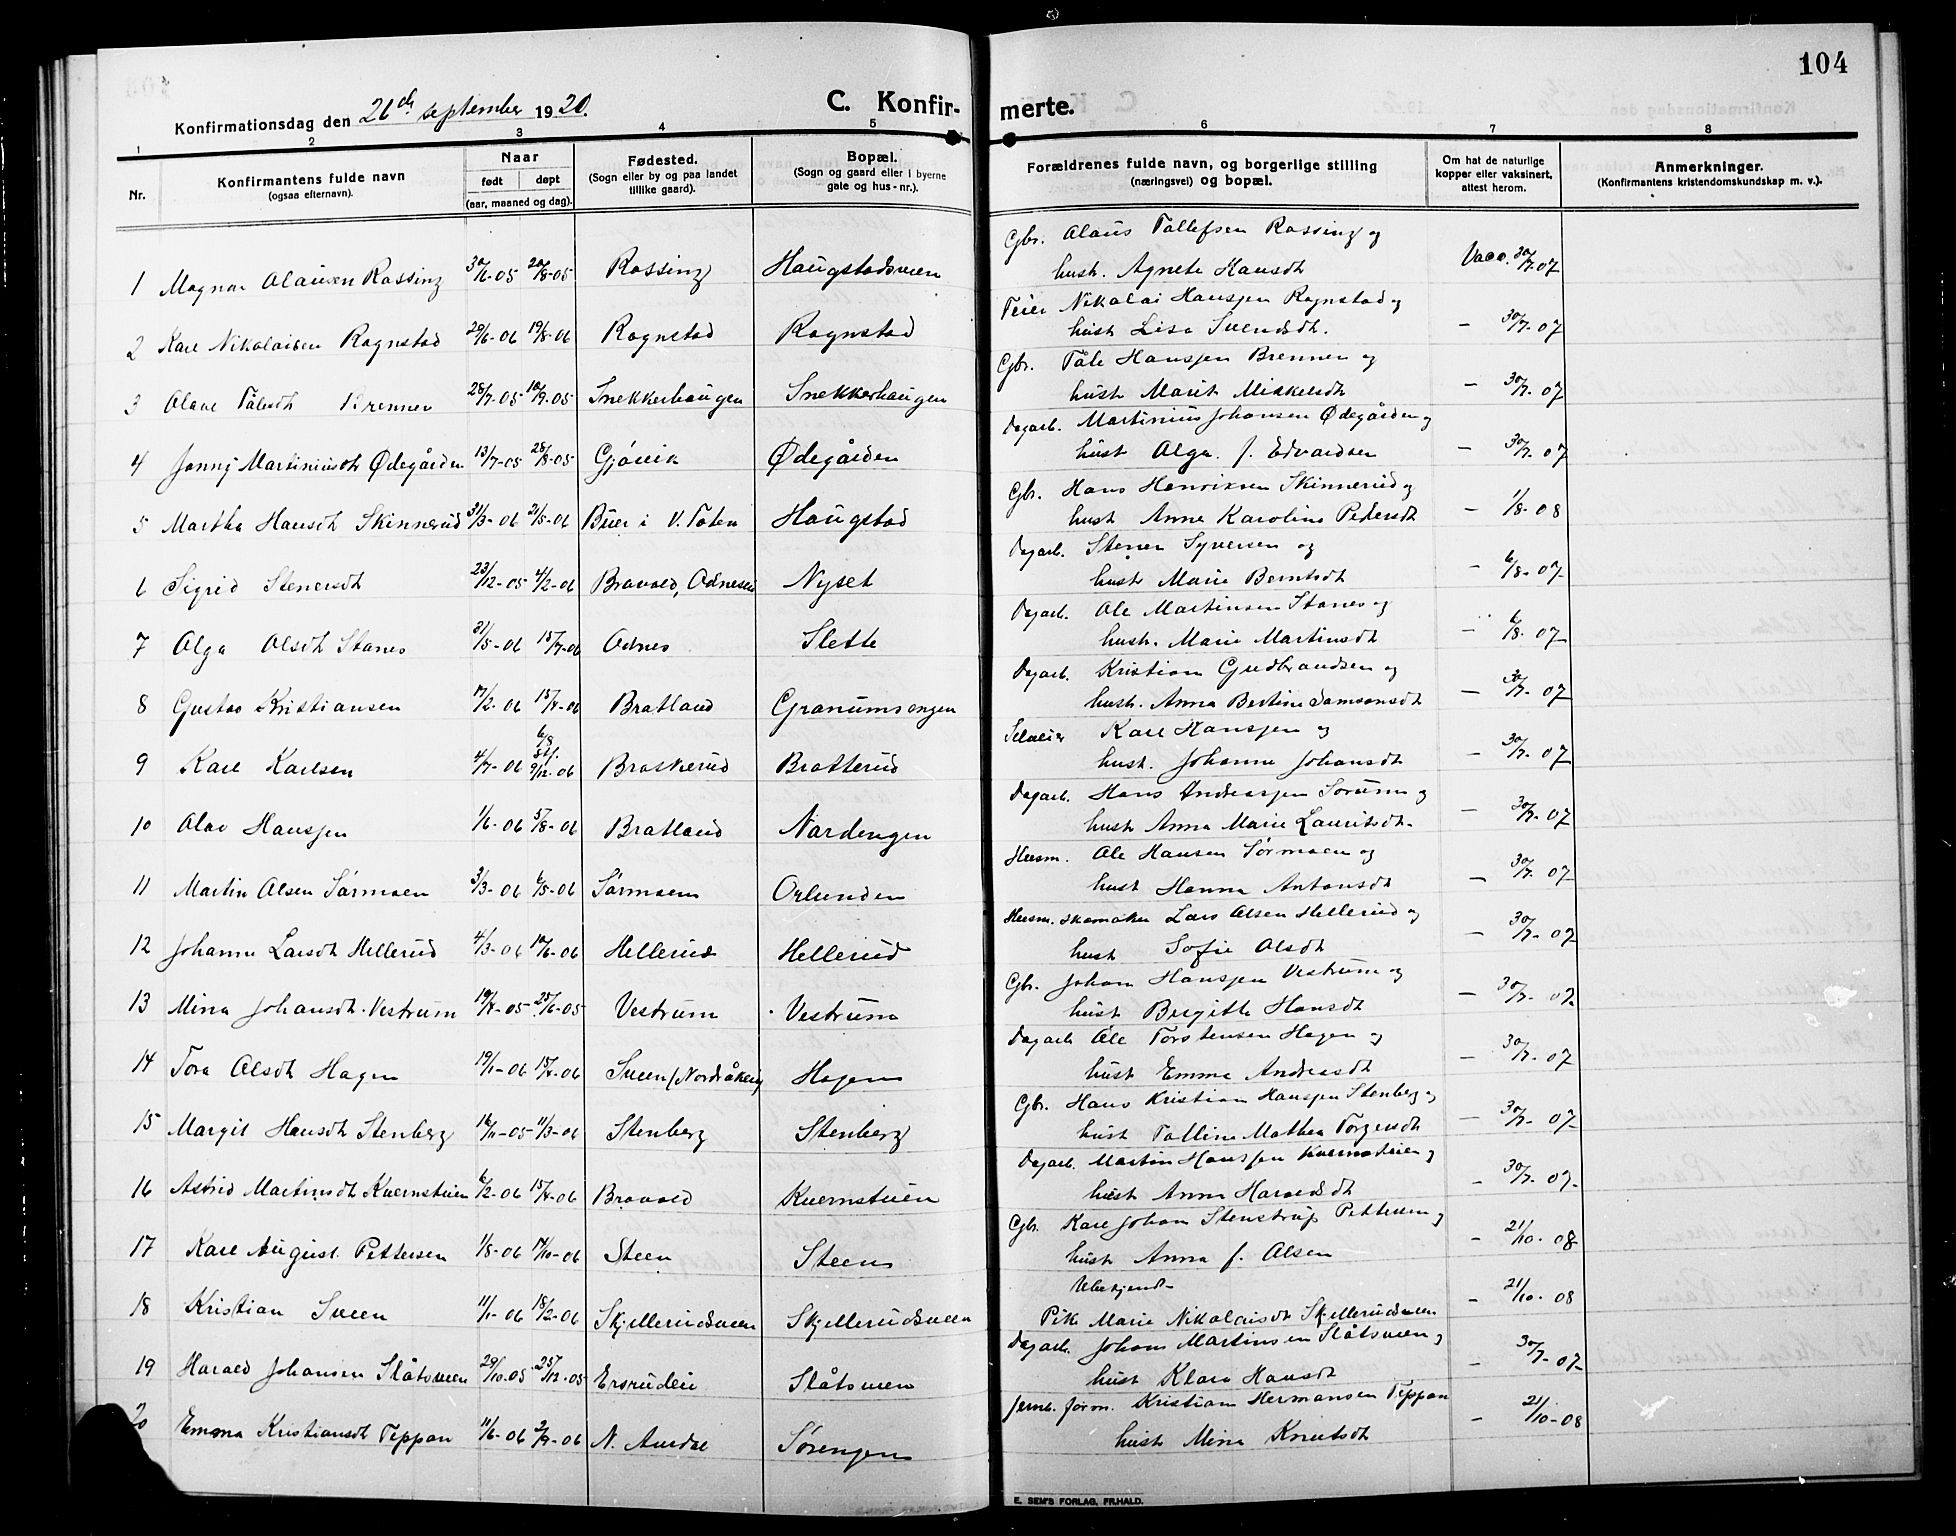 104
Konfirmationsdag den 26de september 1920.
C. Konfirmerte.
1 2 3 4 5 6 7 8
Nr.
Konfirmantens fulde navn (ogsaa efternavn).
Naar født døpt (aar, maaned og dag).
Fødested. (Sogn eller by og paa landet tillike gaard).
Bopæl. (Sogn og gaard eller i byerne gate og hus-nr.).
Forældrenes fulde navn, og borgerlige stilling (næringsvei) og bopæl.
Om hat de naturlige kopper eller vaksinert, attest herom.
Anmerkninger. (Konfirmantens kristendomskundskap m. v.).
1 Magnar Olausen Rossing 30/6-05 20/8-05 Rossing Haugstadsveen Gbr. Olaus Tollefsen Rossing og hust. Agnete Hansdt Vacc. 30/7-07
2 Karl Nikolaisen Rognstad 29/6-06 19/8-06 Rognstad Rognstad Feier Nikolai Hansen Rognstad og hust Lisa Svendsdt. - 30/7-07
3 Olave Tålesdt Brennen 28/7-05 10/9-05 Snekkerhaugen Snekkerhaugen Gbr. Tåle Hansen Brennen og hust Marit Mikkelsdt - 30/7-07
4 Jenny Martiniusdt Ødegården 13/7-05 28/8-05 Gjøvik Ødegården Dagarb. Martinius Johansen Ødegården og hust Olga f. Edvardsen - 30/7-07
5 Martha Hansdt Skinnerud 31/3-06 21/5-06 Buer i V. Toten Haugstad Gbr. Hans Henriksen Skinnerud og hust Anne Karoline Pedersdt - 1/8-08
6 Sigrid Stenersdt 23/12-05 4/2-06 Bravold, Odnes Nyset Dagarb. Stener Syversen og hust Marie Berntsdt - 6/8-07
7 Olga Olsdt Stanes 31/5-06 15/7-06 Odnes Slette Dagarb. Ole Martinsen Stanes og hust. Marie Martinsdt - 6/8-07
8 Gustav Kristiansen 17/2-06 15/4-06 Bratland Granumsengen Dagarb. Kristian Gudbrandsen og hust. Anna Bertine Samsonsdt - 30/7-07
9 Karl Karlsen 4/7-06 6/8 st. 9/12-06 Braskerud Bratterud Selveier Karl Hansen og hust. Johanne Johansdt - 30/7-07
10 Olav Hansen 1/6-06 5/8-06 Bratland Nordengen Dagarb. Hans Andreasen Sørum og hust Anna Marie Lauritsdt. - 30/7-07
11 Martin Olsen Sørmoen 3/3-06 6/5-06 Sørmoen Orlunden Husm. Ole Hansen Sørmoen og hust Hanna Antonsdt - 30/7-07
12 Johanne Larsdt Hellerud 4/3-06 10/6-06 Hellerud Hellerud Husm. skomaker Lars Olsen Hellerud og hust Sofie Olsdt - 30/7-07
13 Mina Johansdt. Vestrum 19/4-05 25/6-05 Vestrum Vestrum Gbr. Johan Hansen Vestrum og hust Birgitte Hansdt - 30/7-07
14 Tora Olsdt Hagen 19/1-06 15/4-06 Sveen (Nordråkeng) Hagen Dagarb Ole Torstensen Hagen og hust Emma Andreasdt - 30/7-07
15 Margit Hansdt Stenberg 16/11-05 11/3-06 Stenberg Stenberg Gbr. Hans Kristian Hansen Stenberg og hust Tolline Mathea Torgersdt - 30/7-07
16 Astrid Martinsdt Kvernstuen 6/2-06 15/4-06 Bravold Kvernstuen Dagarb. Martin Hansen Kvernstuen og hust Anna Haraldsdt - 30/7-07
17 Karl August Pettersen 1/8-06 17/10-06 Steen Steen Gbr. Karl Johan Stenstrup Pettersen og hust Anna f. Olsen - 21/10-08
18 Kristian Sveen 11/1-06 18/2-06 Skjellerudsveen Skjellerudsveen Ubekjendt Pike Marie Nikolaisdt Skjellerudsveen - 21/10-08
19 Harald Johansen Slåtsveen 29/10-05 25/12-05 Ersrudeie Slåtsveen Dagarb. Johan Martinsen Slåtsveen og hust Klara Hansdt - 30/7-07
20 Emma Kristiansdt Teppan 11/6-06 2/9-06 N. Aurdal Sørengen Jernb. form. Kristian Hermansen Teppan hust Mina Knutsdt - 21/10-08
E. SEM'S FORLAG, FR.HALD.